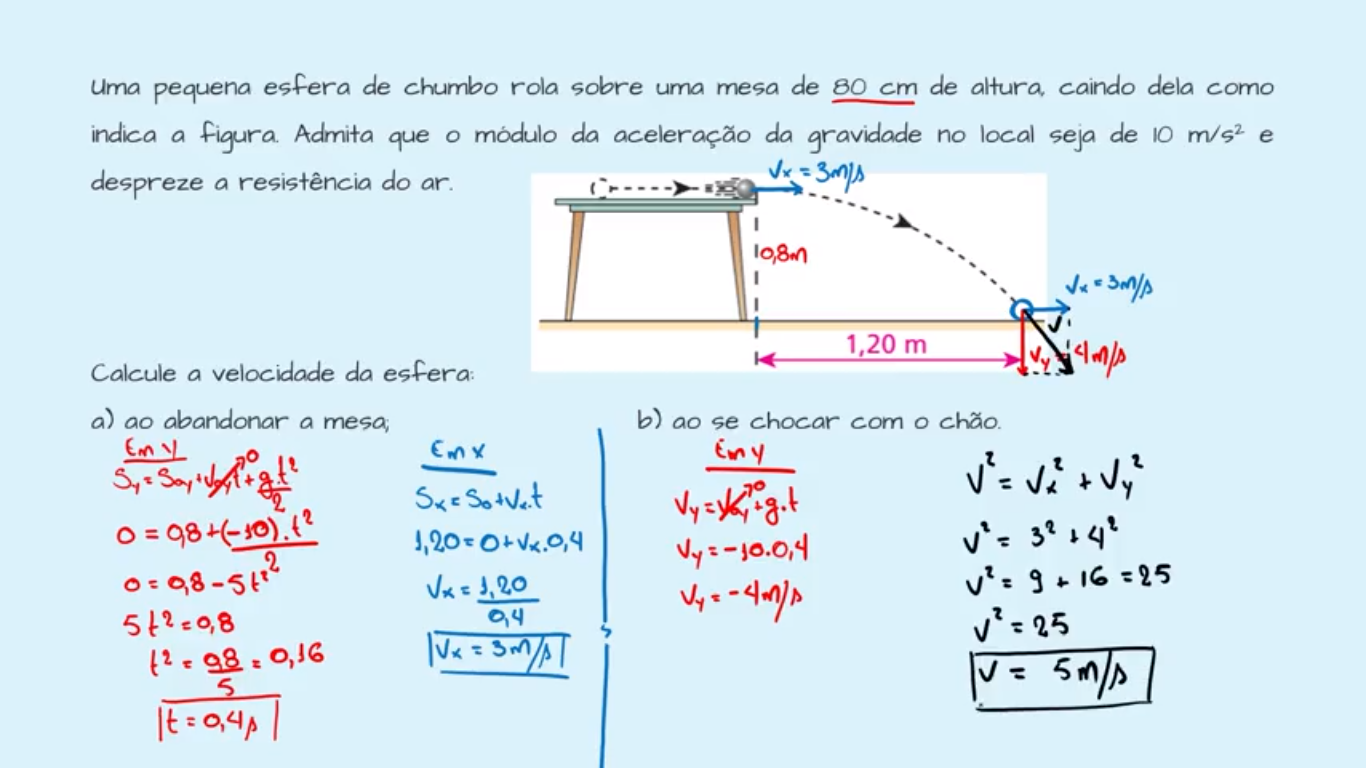 Uma pequena esfera de chumbo rola sobre uma mesa de 80 cm de altura, caindo dela como
indica a figura. Admita que o módulo da aceleração da gravidade no local seja de 10 m/s² e
despreze a resistência do ar.
Vx = 3m/s
0,8m
Vx = 3m/s
V
1,20 m
Vy = 4m/s
Calcule a velocidade da esfera:
a) ao abandonar a mesa;
Em y
Sy = Soy + Voy t + g.t²/2
0
0 = 0,8 + (-10).t²/2
0 = 0,8 - 5t²
5t² = 0,8
t² = 0,8/5 = 0,16
t = 0,4s
Em x
Sx = So + Vx.t
1,20 = 0 + Vx.0,4
Vx = 1,20/0,4
Vx = 3m/s
b) ao se chocar com o chão.
Em y
Vy = Voy + g.t
0
Vy = -10.0,4
Vy = -4m/s
V² = Vx² + Vy²
V² = 3² + 4²
V² = 9 + 16 = 25
V² = 25
V = 5m/s